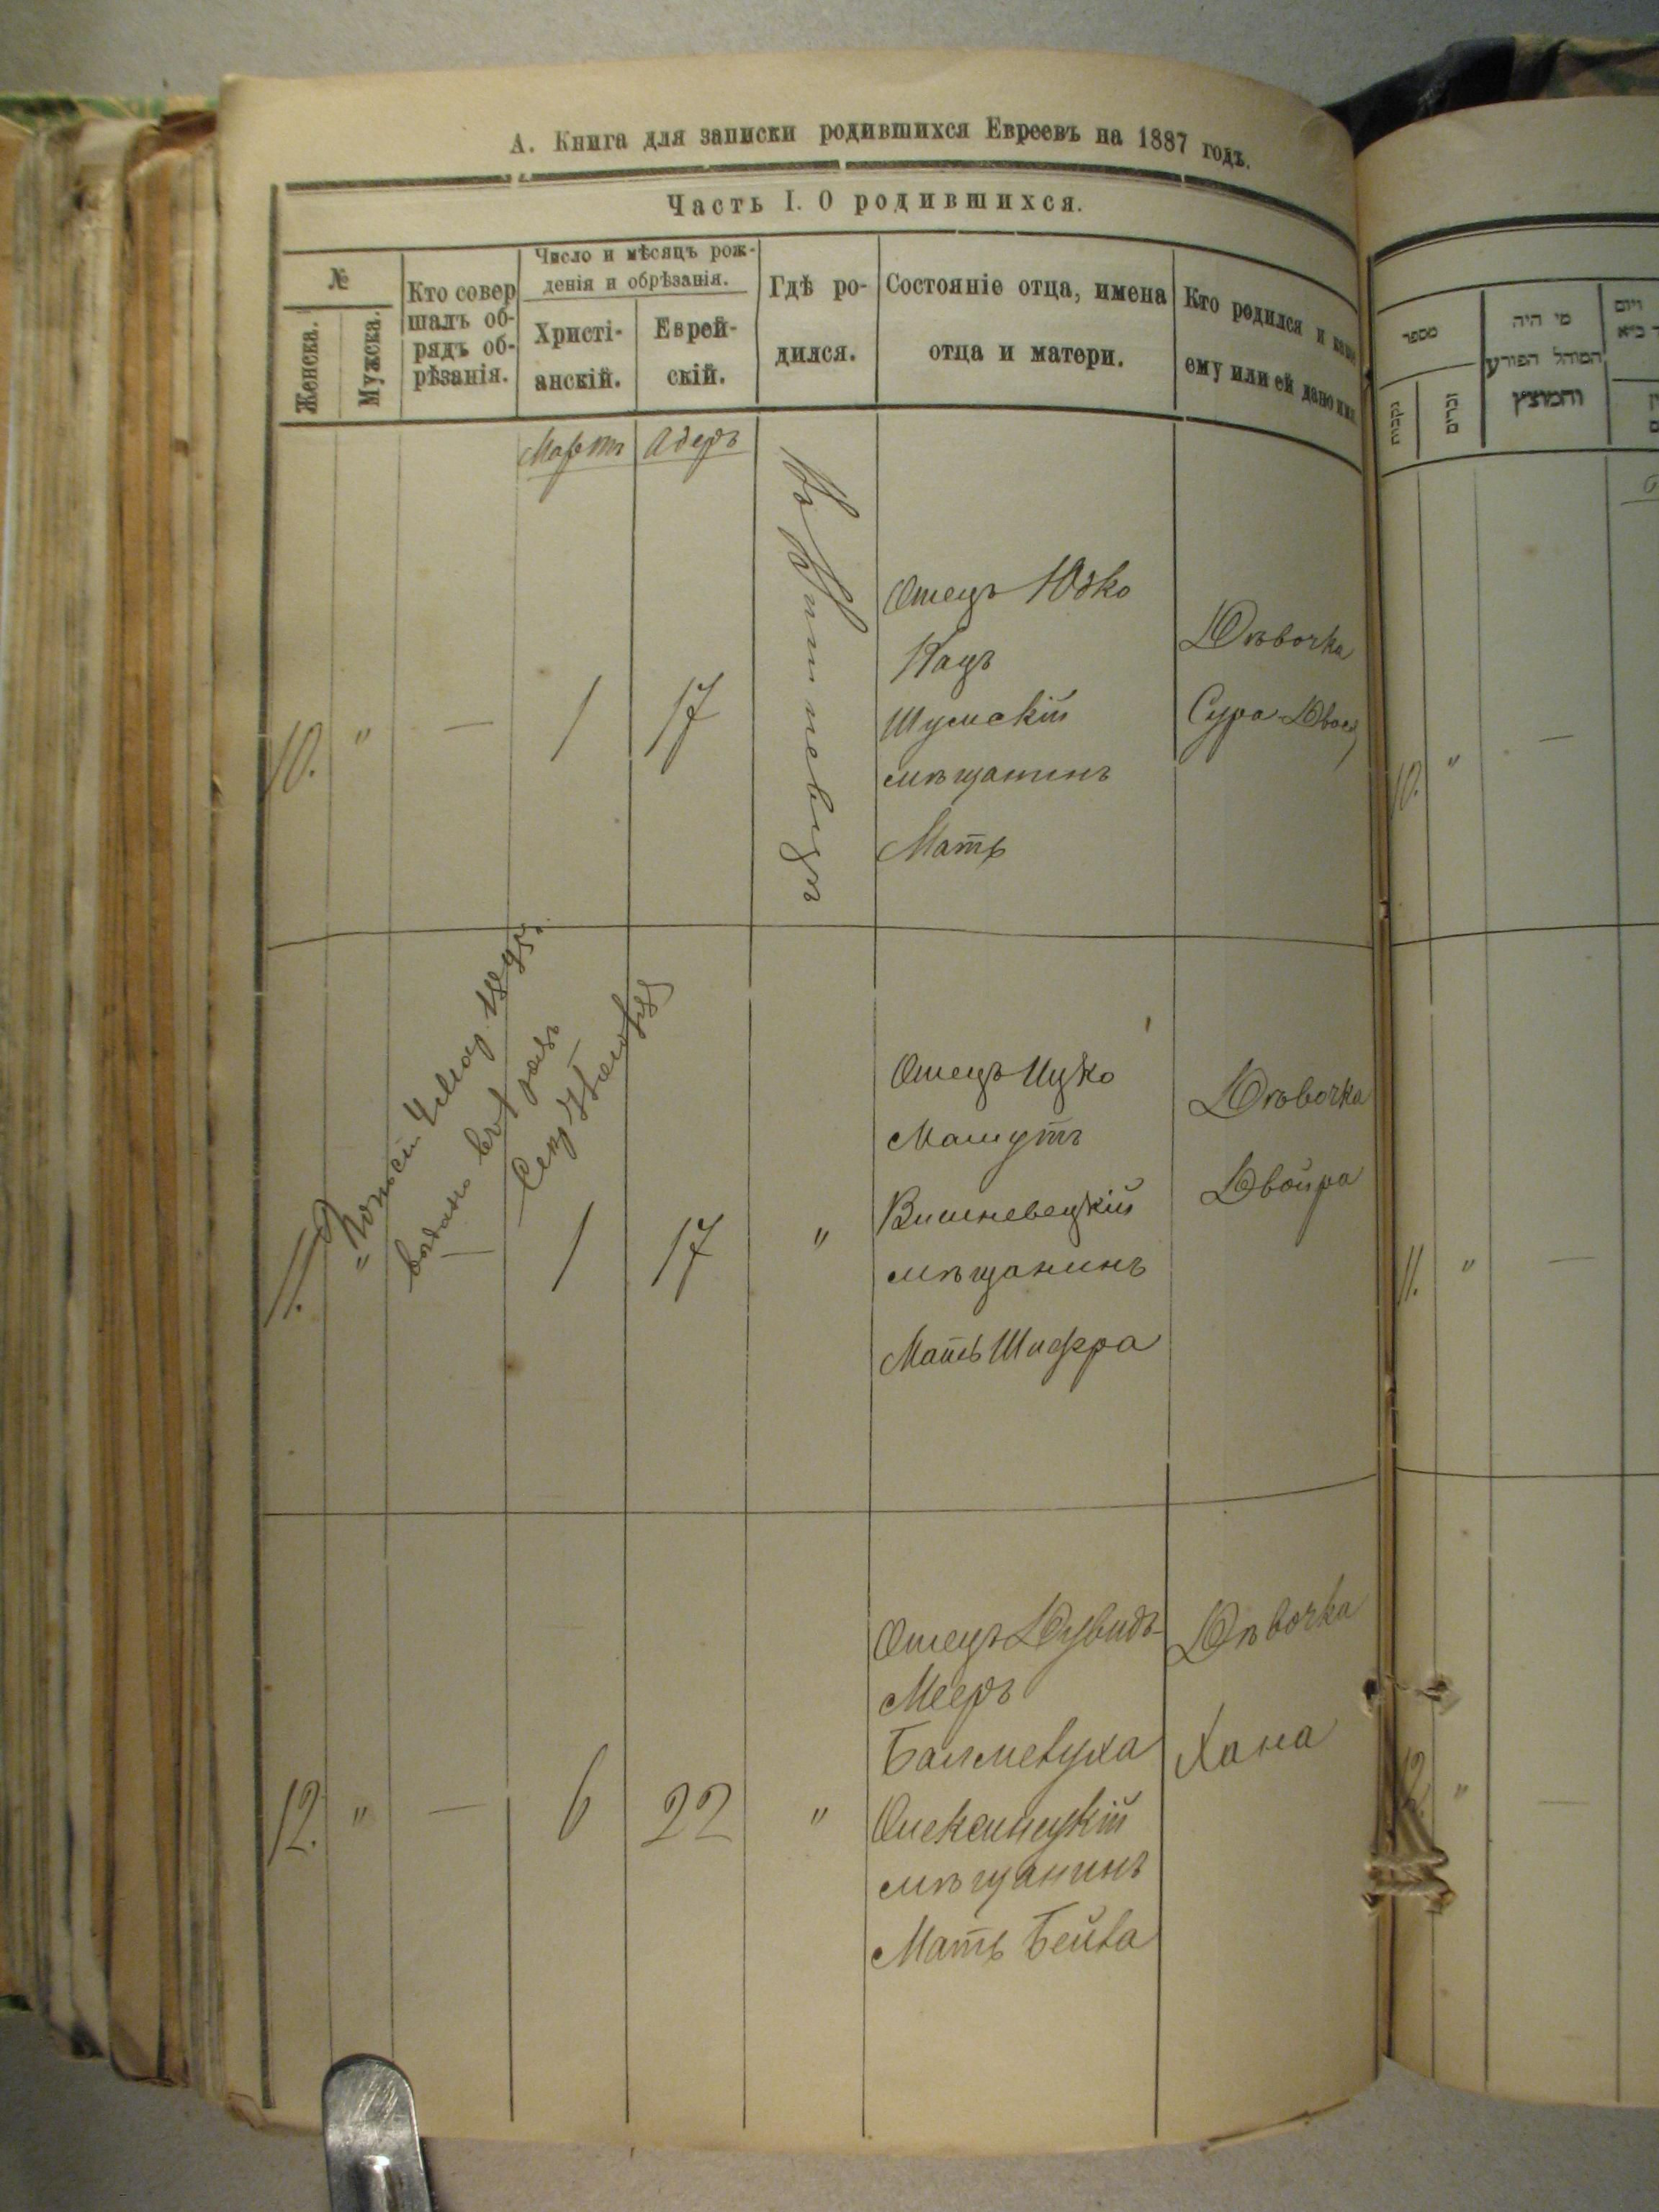 А. Книга для записки родившихся Евреевъ на 1887 годъ.
Часть I. О родившихся.
№
Женска.
Мужска.
Кто совер
шалъ об-
рядъ об-
рѣзанія.
Число и мѣсяцъ рож-
денія и обрѣзанія.
Христі-
анскій.
Еврей-
скій.
Гдѣ ро-
дился.
Состояніе отца, имена
отца и матери.
Кто родился и какое
ему или ей дано имя.
Мартъ
Адеръ
10.
"
—
1
17
Въ Вишневцѣ
Отецъ Юдко
Кацъ
Шумскій
мѣщанинъ
Мать
Дѣвочка
Сура-Двося
11.
"
—
1
17
"
Отецъ Ицко
Машутъ
Вишневецкій
мѣщанинъ
Мать Шифра
Дѣвочка
Двойра
12.
"
—
6
22
"
Отецъ Дувидъ-
Мееръ
Балмевуха
Олексинецкій
мѣщанинъ
Мать Бейва
Дѣвочка
Хана
מספר
נקבות
זכרים
מי היה
המוהל הפורע
והמוצץ
10.
"
—
11.
"
—
12.
"
—